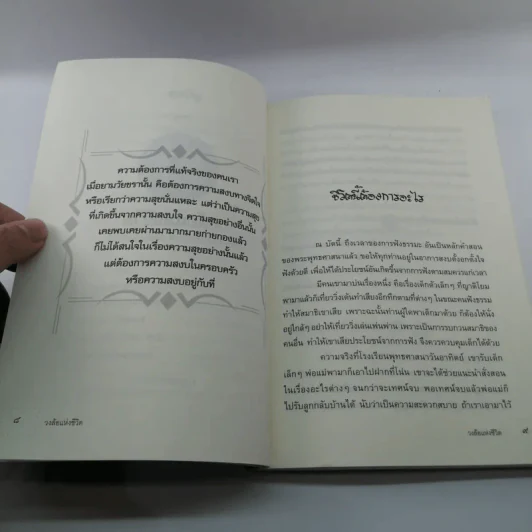 ความต้องการที่แท้จริงของคนเรา
เมื่อยามวัยชรานั้น คือต้องการความสงบทางจิตใจ
หรือเรียกว่าความสุขนั่นแหละ แต่ว่าเป็นความสุข
ที่เกิดขึ้นจากความสงบใจ ความสุขอย่างอื่นนั้น
เคยพบเคยผ่านมามากมายก่ายกองแล้ว
ก็ไม่ได้สนใจในเรื่องความสุขอย่างนั้นแล้ว
แต่ต้องการความสงบในครอบครัว
หรือความสงบอยู่กับที่
๘
วงล้อแห่งชีวิต
ชีวิตนี้ต้องการอะไร
ณ บัดนี้ ถึงเวลาของการฟังธรรมะ อันเป็นหลักคำสอน
ของพระพุทธศาสนาแล้ว ขอให้ทุกท่านอยู่ในอาการสงบตั้งอกตั้งใจ
ฟังด้วยดี เพื่อให้ได้ประโยชน์อันเกิดขึ้นจากการฟังตามสมควรแก่เวลา
มีคนเขามาบ่นเรื่องหนึ่ง คือเรื่องเด็กตัวเล็กๆ ที่ญาติโยม
พามาแล้วก็เที่ยววิ่งเต้นทำเสียงอึกทึกตามที่ต่างๆ ในขณะคนฟังธรรม
ทำให้สมาธิเขาเสีย เพราะฉะนั้นท่านผู้ใดพาเด็กมาด้วย ก็ต้องให้นั่ง
อยู่ใกล้ๆ อย่าให้เที่ยววิ่งเล่นเพ่นพ่าน เพราะเป็นการรบกวนสมาธิของ
คนอื่น ทำให้เขาเสียประโยชน์จากการฟัง จึงควรควบคุมเด็กไว้ด้วย
ความจริงที่โรงเรียนพุทธศาสนาวันอาทิตย์ เขารับเด็ก
เล็กๆ พ่อแม่พามาก็เอาไปฝากที่โน่น เขาจะได้ช่วยแนะนำสั่งสอน
ในเรื่องอะไรต่างๆ จนกว่าจะเทศน์จบ พอเทศน์จบแล้วพ่อแม่ก็
ไปรับลูกกลับบ้านได้ นับว่าเป็นความสะดวกสบาย ถ้าเราเอามาไว้
วงล้อแห่งชีวิต
๙